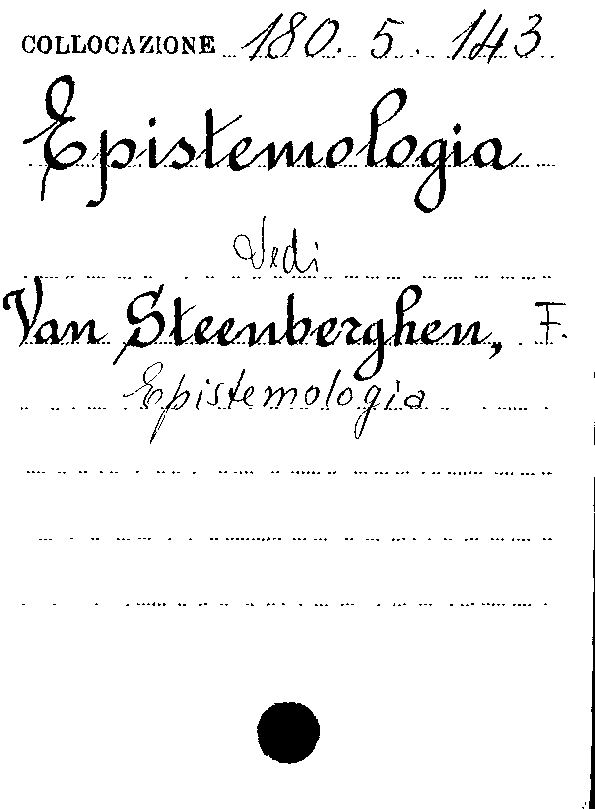 COLLOCAZIONE 180. 5. 143
Epistemologia
Vedi
Van Steenberghen, F.
Epistemologia